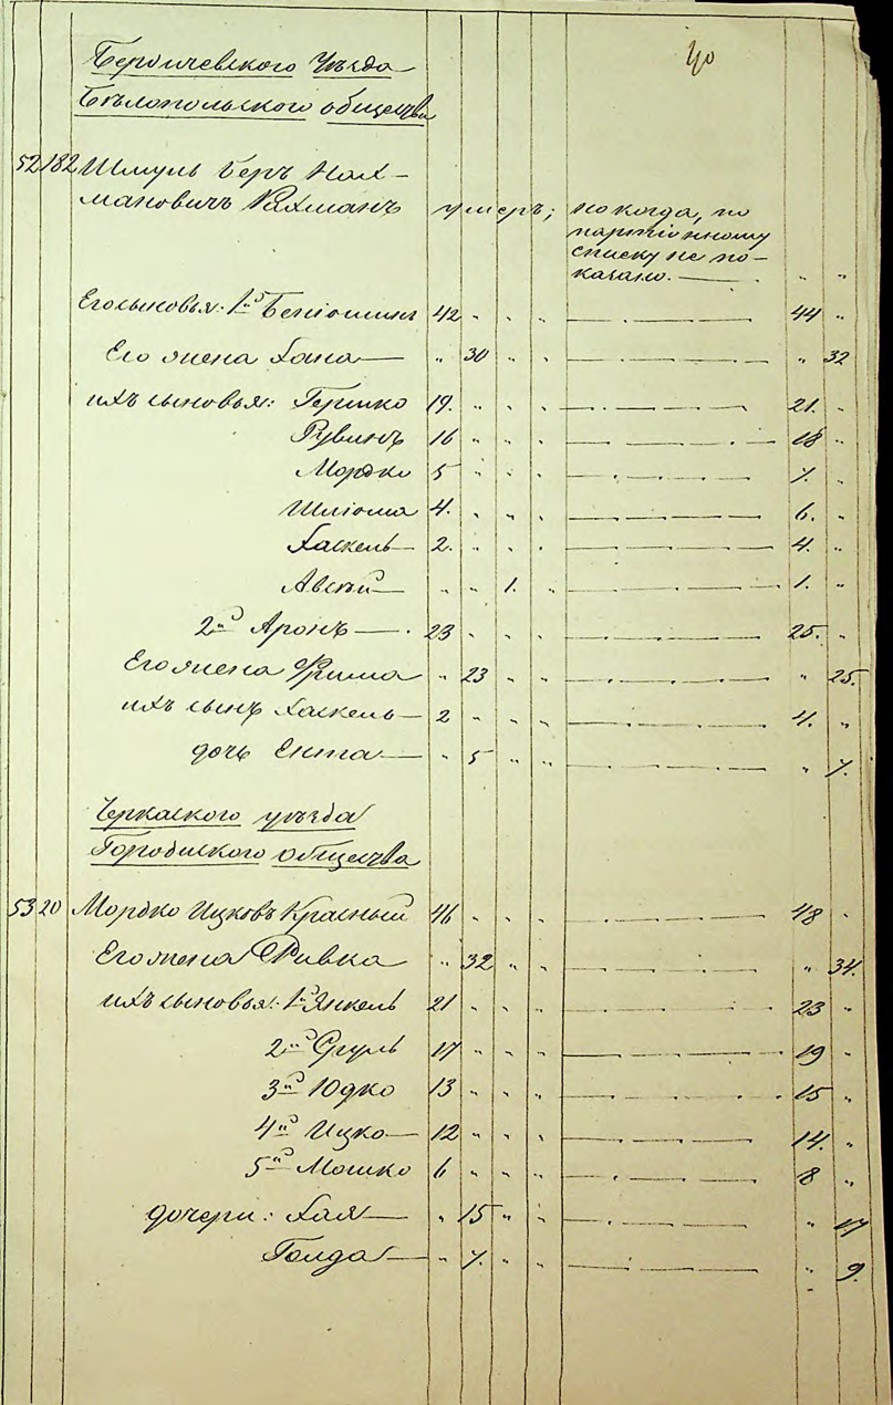 40
Бердичевского Уѣзда
Бѣлопольского общества
52 182 Шмуль Беръ Нах-
мановичъ Рахманъ умеръ; но когда, по
партіонному
списку не по-
казано. — „ „
Его сыновья: 1й Беніоминъ 42 „ „ „ — · — · — 44 „
Его жена Хана — „ 30 „ „ — · — · — „ 32
ихъ сыновья: Гершко 19. „ „ „ — · — · — 21. „
Рувинъ 16 „ „ „ — · — · — 18 „
Мордко 5 „ „ „ — · — · — 7. „
Шліома 4. „ „ „ — · — · — 6. „
Хаскель — 2. „ „ „ — · — · — 4. „
Авсѣй — „ „ 1. „ — · — · — 1. „
2й Аронъ — . 23 „ „ „ — · — · — 25. „
Его жена Фрима „ 23 „ „ — · — · — „ 25.
ихъ сынъ Хаскель — 2 „ „ „ — · — · — 4. „
дочь Ента — „ 5 „ „ — · — · — „ 7.
Черкаского уѣзда
Городиского общества
53 20 Мордко Ицковъ Красный 46 „ „ „ — · — · — 48 „
Его жена Ривка „ 32 „ „ — · — · — „ 34.
ихъ сыновья: 1й Янкель 21 „ „ „ — · — · — 23 „
2й Сруль 17 „ „ „ — · — · — 19 „
3й Юдко 13 „ „ „ — · — · — 15 „
4й Ицко — 12 „ „ „ — · — · — 14. „
5й Мошко 6 „ „ „ — · — · — 8 „
дочери: Хая — „ 15 „ „ — · — · — „ 17
Голда — „ 7. „ „ — · — · — „ 9.